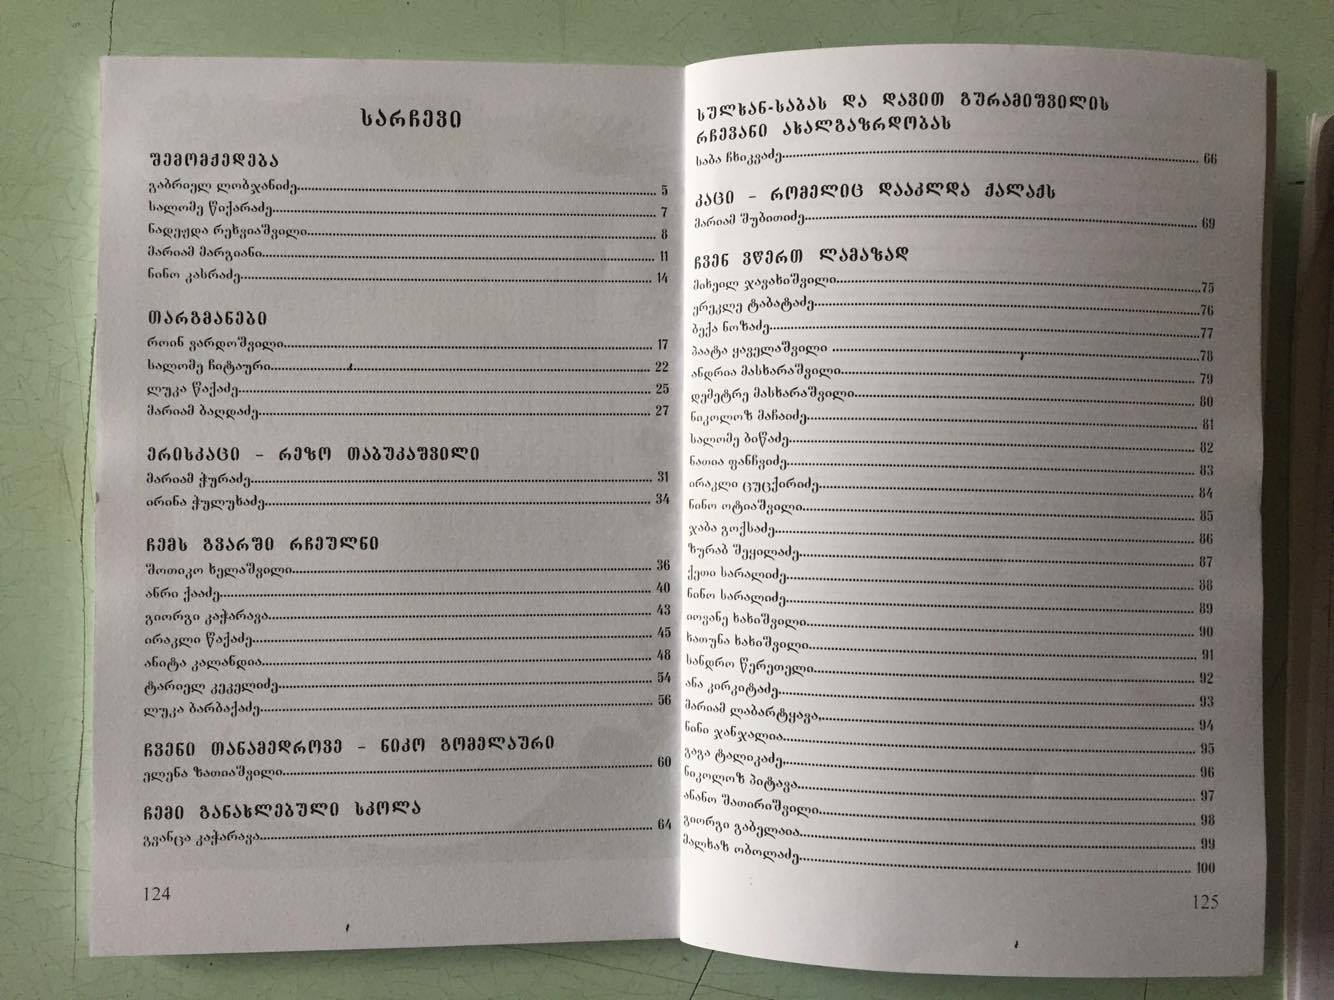 სარჩევი
შემოქმედება
გაბრიელ ლობჯანიძე 5
სალომე წიქარაძე 7
ნადეჟდა რეხვიაშვილი 8
მარიამ მარგიანი 11
ნინო კასრაძე 14
თარგმანები
როინ ვარდოშვილი 17
სალომე ჩიტაური 22
ლუკა წაქაძე 25
მარიამ ბაღდაძე 27
ერისკაცი - რეზო თაბუკაშვილი
მარიამ ჭურაძე 31
ირინა ჭულუხაძე 34
ჩემს გვარში რჩეულნი
შოთიკო ხელაშვილი 36
ანრი ქააძე 40
გიორგი კაჭარავა 43
ირაკლი წაქაძე 45
ანიტა კალანდია 48
ტარიელ კეკელიძე 54
ლუკა ბარბაქაძე 56
ჩვენი თანამედროვე - ნიკო გომელაური
ელენა ზათიაშვილი 60
ჩემი განახლებული სკოლა
გვანცა კაჭარავა 64
124
სულხან-საბას და დავით გურამიშვილის
რჩევანი ახალგაზრდობას
საბა ჩხიკვაძე 66
კაცი - რომელიც დააკლდა ქალაქს
მარიამ შუბითიძე 69
ჩვენ ვწერთ ლამაზად
მიხეილ ჯავახიშვილი 75
ერეკლე ტაბატაძე 76
ბექა ნოზაძე 77
პაატა ყაველაშვილი 78
ანდრია მასხარაშვილი 79
დემეტრე მასხარაშვილი 80
ნიკოლოზ მაჩაიძე 81
სალომე ბიწაძე 82
ნათია ფანჩვიძე 83
ირაკლი ცუცქირიძე 84
ნინო ოტიაშვილი 85
ჯაბა გოქსაძე 86
ზურაბ შეყილაძე 87
ქეთი სარალიძე 88
ნინო სარალიძე 89
იოვანე ხახიშვილი 90
ხათუნა ხახიშვილი 91
სანდრო წერეთელი 92
ანა კირკიტაძე 93
მარიამ ლაბარტყავა 94
ნინი ჯანჯალია 95
გაგა ტალიკაძე 96
ნიკოლოზ პიტავა 97
ანანო შათირიშვილი 98
გიორგი გაბელაია 99
მალხაზ ობოლაძე 100
125